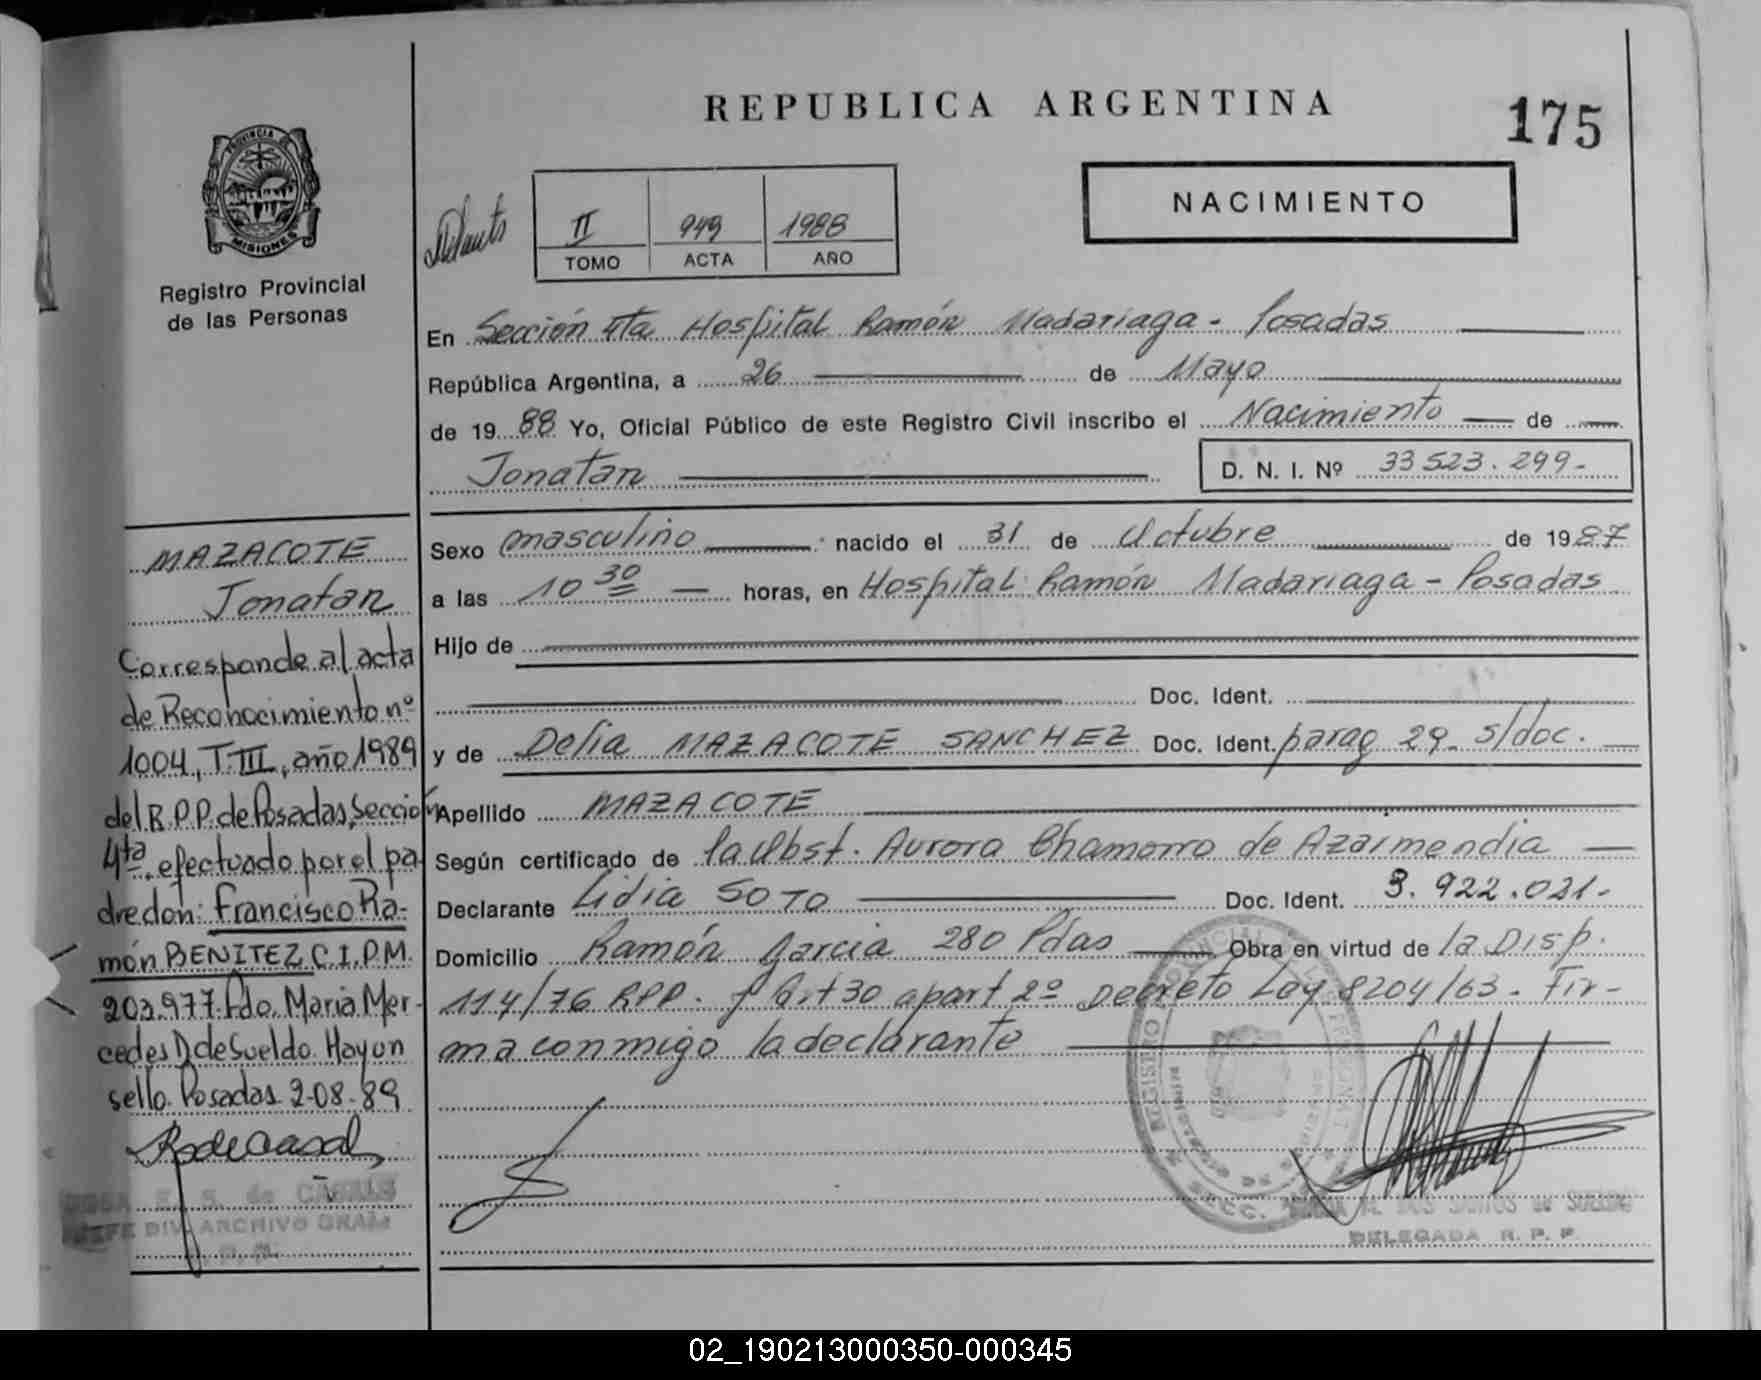 REPUBLICA ARGENTINA
175
PROVINCIA DE
MISIONES
Registro Provincial
de las Personas
II 949 1988
TOMO ACTA AÑO
NACIMIENTO
En Sección 4ta Hospital Ramón Madariaga - Posadas
República Argentina, a 26 de Mayo
de 1988 Yo, Oficial Público de este Registro Civil inscribo el Nacimiento de
Jonatan D. N. I. Nº 33 523.299-
Sexo masculino nacido el 31 de Octubre de 1987
a las 10 30 horas, en Hospital Ramón Madariaga - Posadas
Hijo de
Doc. Ident.
y de Delia MAZACOTE SANCHEZ Doc. Ident. parag 29. s/doc.
Apellido MAZACOTE
Según certificado de la Obst. Aurora Chamorro de Azarmendia
Declarante Lidia SOTO Doc. Ident. 3.922.021-
Domicilio Ramón Garcia 280 Pdas Obra en virtud de la Disp.
114/76 RPP. y Art 30 apart 2º Decreto Ley 8204/63. Fir-
ma conmigo la declarante
MAZACOTE
Jonatan
Corresponde al acta
de Reconocimiento nº
1004, T-III, año 1989
del R.P.P. de Posadas, Sección
4ta. efectuado por el pa-
dre don: Francisco Ra-
món BENITEZ C.I.P.M.
203.977. Fdo. Maria Mer-
cedes D de Sueldo. Hay un
sello. Posadas 2-08-89
E. S. de CASALS
JEFE DIV. ARCHIVO GRAL
DOS SANTOS de SUELDO
DELEGADA R. P. P.
02_190213000350-000345